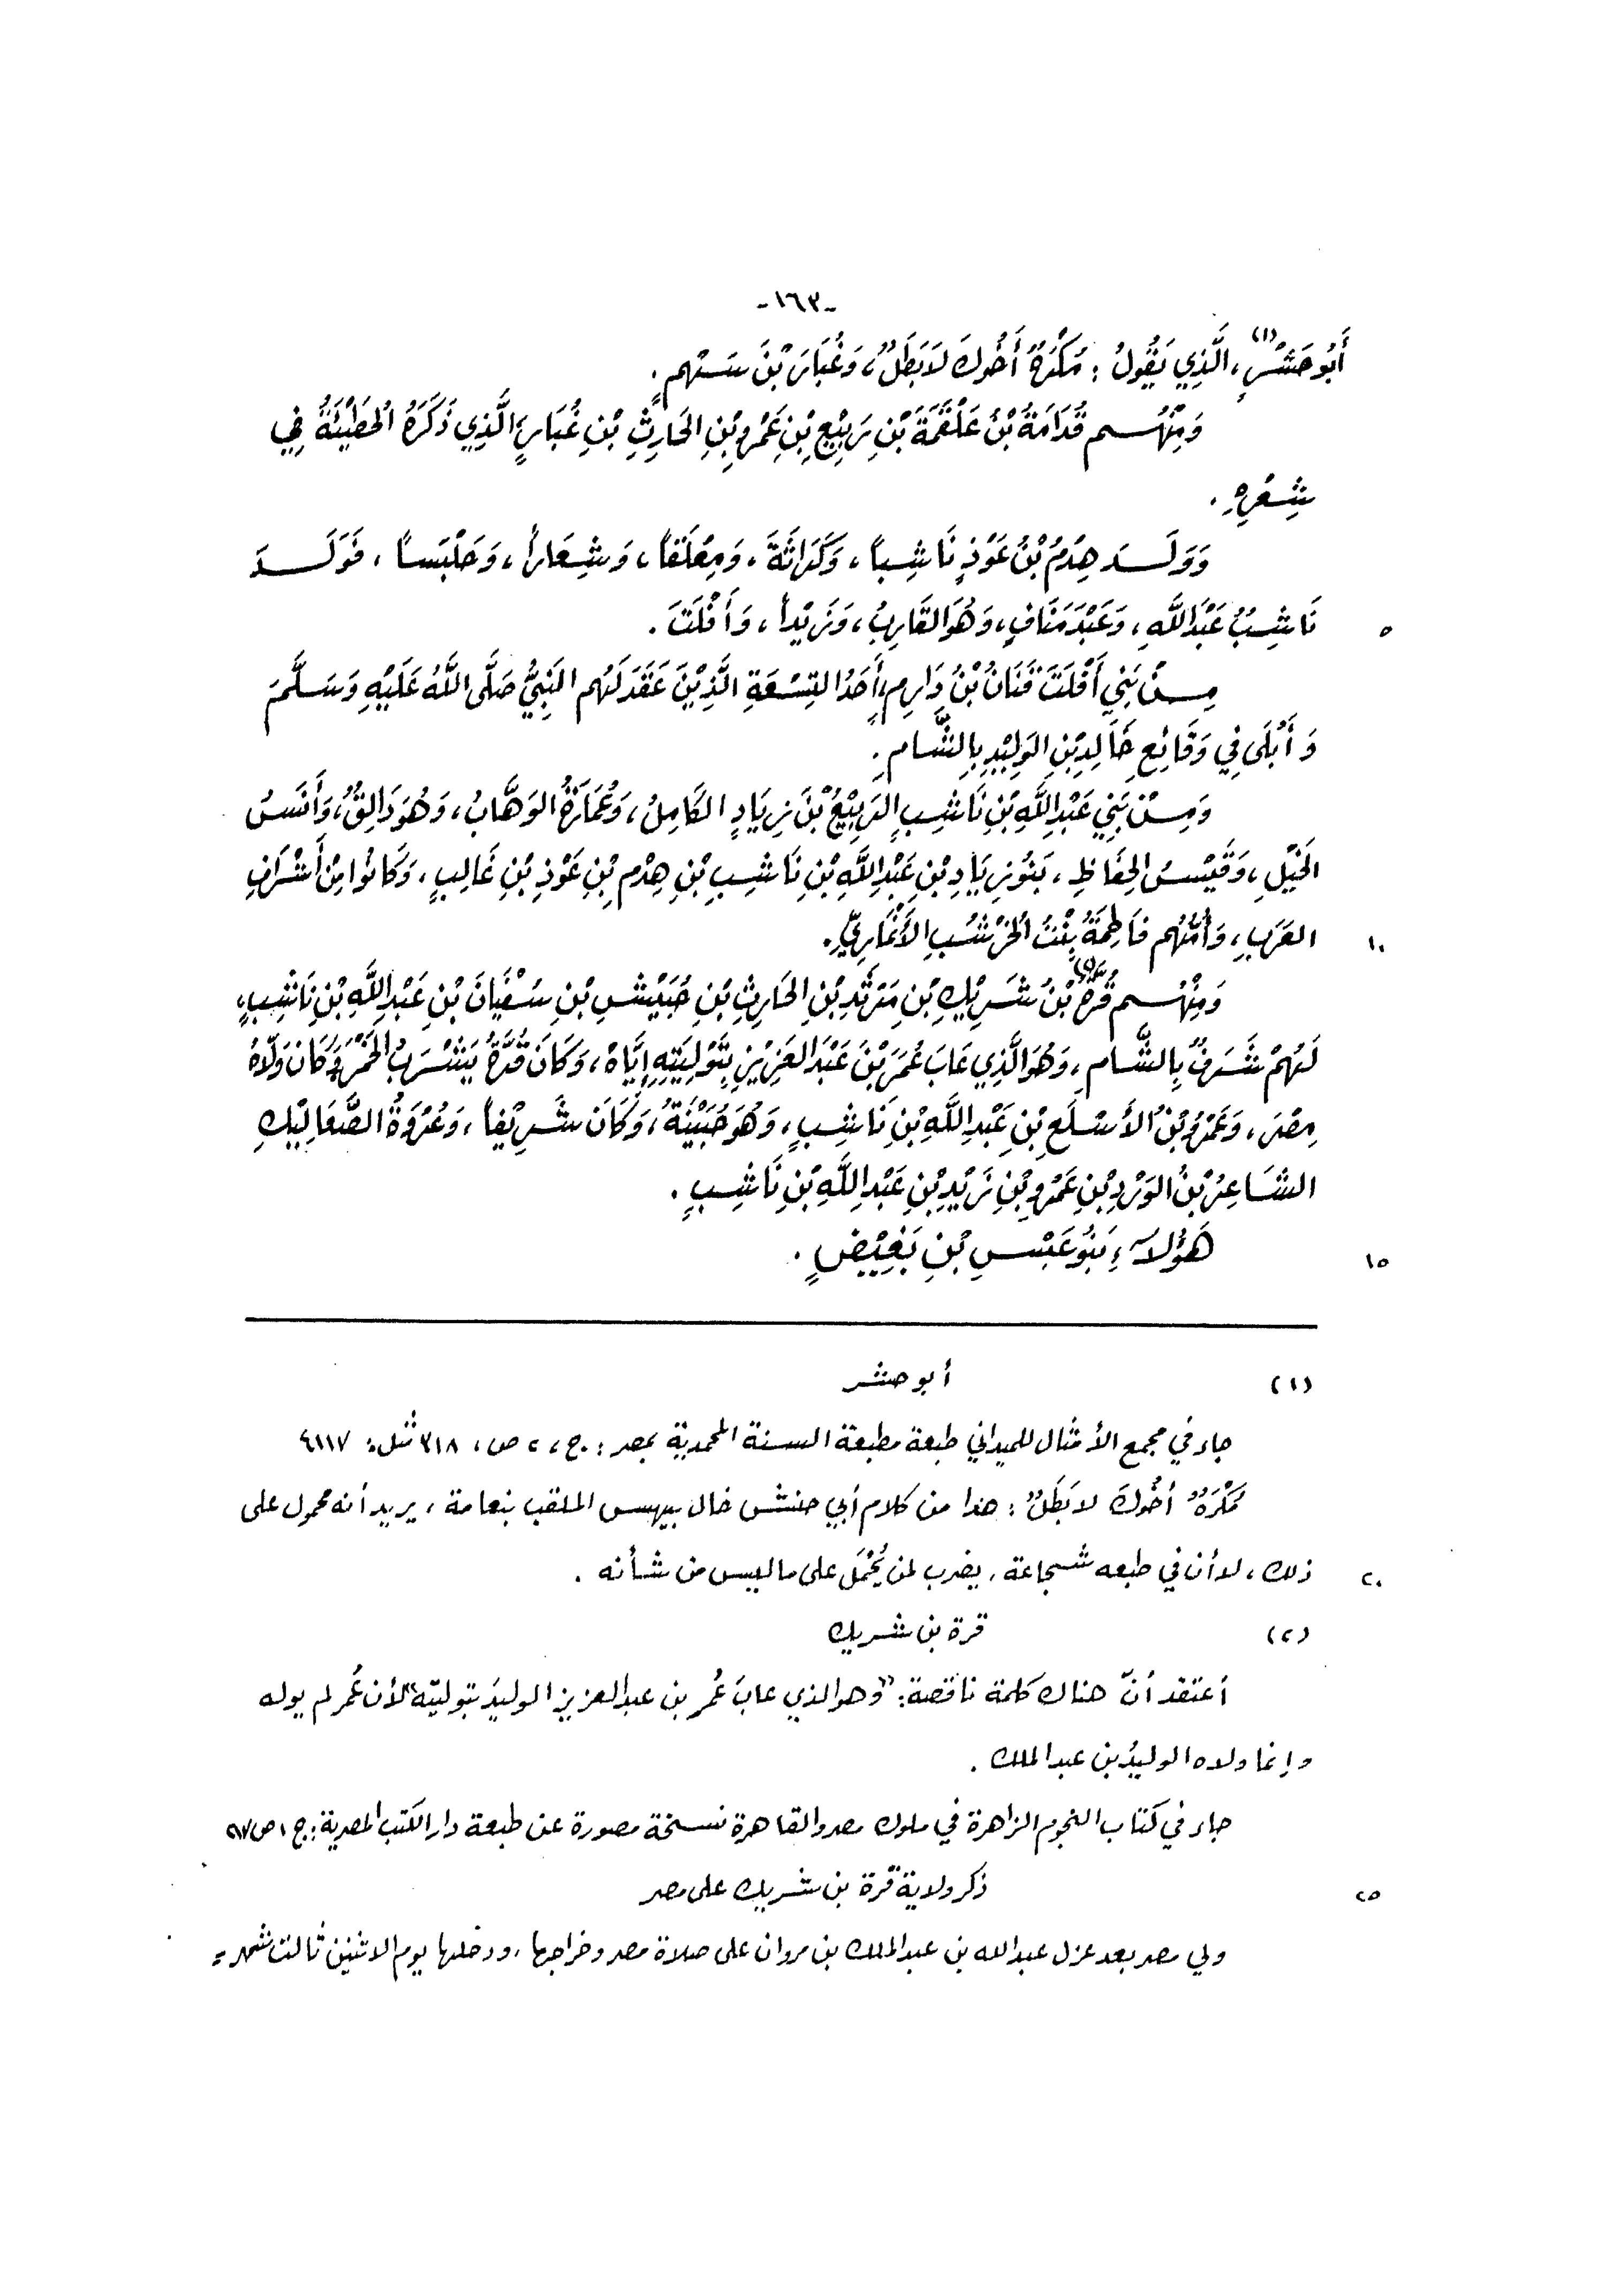 -١٦٣-
أَبُو حَشْرٍ(١)، الَّذِي يَقُولُ : مُكْرَهٌ أَخُوكَ لَا بَطَلٌ، وَغُبَارَ بْنَ سَهْمٍ.
وَمِنْهُم قُدَامَةُ بْنُ عَلْقَمَةَ بْنِ رَبِيْعِ بْنِ عَمْرِو بْنِ الحَارِثِ بْنِ غُبَارٍ، الَّذِي ذَكَرَهُ الحُطَيْئَةُ فِي
شِعْرِهِ.
وَوَلَدَ هِدْمُ بْنُ عَوْذٍ نَاشِباً، وَكَرَاثَةَ، وَمِعْلَقاً، وَشِعَاراً، وَحَلْبَساً، فَوَلَدَ
نَاشِبُ عَبْدَ اللَّهِ، وَعَبْدَ مَنَافٍ، وَهُوَ القَارِبُ، وَزَيْداً، وَأَفْلَتَ. ٥
مِنْ بَنِي أَفْلَتَ قَنَانُ بْنُ دَارِمٍ، أَحَدُ التِسْعَةِ الَّذِيْنَ عَقَدَ لَهُم النَبِيُّ صَلَّى اللَّهُ عَلَيْهِ وَسَلَّمَ
وَأَبْلَى فِي وَقَائِعِ خَالِدِ بْنِ الوَلِيْدِ بِالشَّامِ.
وَمِنْ بَنِي عَبْدِ اللَّهِ بْنِ نَاشِبٍ الرَبِيْعُ بْنَ زِيَادٍ الكَامِلُ، وَعُمَارَةُ الوَهَّابُ، وَهُوَ دَالِقٌ، وَأَنَسُ
الخَيْلِ، وَقَيْسُ الحِفَاظِ، بَنُو زِيَادِ بْنِ عَبْدِ اللَّهِ بْنِ نَاشِبِ بْنِ هِدْمِ بْنِ عَوْذِ بْنِ غَالِبٍ، وَكَانُوا مِنْ أَشْرَافِ
العَرَبِ، وَأُمُّهُم فَاطِمَةُ بِنْتُ الخُرْشُبِ الأَنْمَارِيِّ. ١٠
وَمِنْهُم قُرَّةُ(٢) بْنُ شَرِيْكِ بْنِ مَرْثَدِ بْنِ الحَارِثِ بْنِ حُبَيْشِ بْنِ سُفْيَانَ بْنِ عَبْدِ اللَّهِ بْنِ نَاشِبٍ،
لَهُمْ شَرَفٌ بِالشَّامِ، وَهُوَ الَّذِي عَابَ عُمَرَ بْنَ عَبْدَ العَزِيْزِ بِتَوْلِيَتِهِ إِيَّاهُ، وَكَانَ قُرَّةُ يَشْرَبُ الخَمْرَ، وَكَانَ وَلَّاهُ
مِصْرَ، وَعَمْرُو بْنُ الأَسْلَعِ بْنِ عَبْدِ اللَّهِ بْنِ نَاشِبٍ، وَهُوَ حُبَيْنَةُ، وَكَانَ شَرِيْفاً، وَعُرْوَةُ الصَّعَالِيْكِ
الشَاعِرُ بْنُ الوَرْدِ بْنِ عَمْرِو بْنِ زَيْدِ بْنِ عَبْدِ اللَّهِ بْنِ نَاشِبٍ.
هَؤُلَاءِ بَنُو عَبْسِ بْنِ بَغِيْضٍ. ١٥
(١) أبو حشر
جاء في مجمع الأمثال للميداني طبعة مطبعة السنة المحمدية بمصر : ج، ٢ ص، ٣١٨ مثل: ٤١١٧
مُكْرَهٌ أخُوكَ لا بَطَلٌ : هذا من كلام أبي حنش خال بيهس الملقب بنعامة، يريد أنه محمول على
ذلك، لا أن في طبعه شجاعة، يضرب لمن يُحْمَل على ما ليس من شأنه . ٢٠
(٢) قرة بن شريك
أعتقد أنّ هناك كلمة ناقصة: "وهو الذي عابَ عُمر بن عبد العزيز الوليدَ بتوليته" لأن عُمر لم يوله
وإنما ولاه الوليدُ بن عبد الملك .
جاء في كتاب النجوم الزاهرة في ملوك مصر والقاهرة نسخة مصورة عن طبعة دار الكتب المصرية: ج ١ ص ٢١٧
ذكر ولاية قرة بن شريك على مصر ٢٥
ولي مصر بعد عزل عبد الله بن عبد الملك بن مروان على صلاة مصر وخراجها، ودخلها يوم الاثنين ثالث شهر =